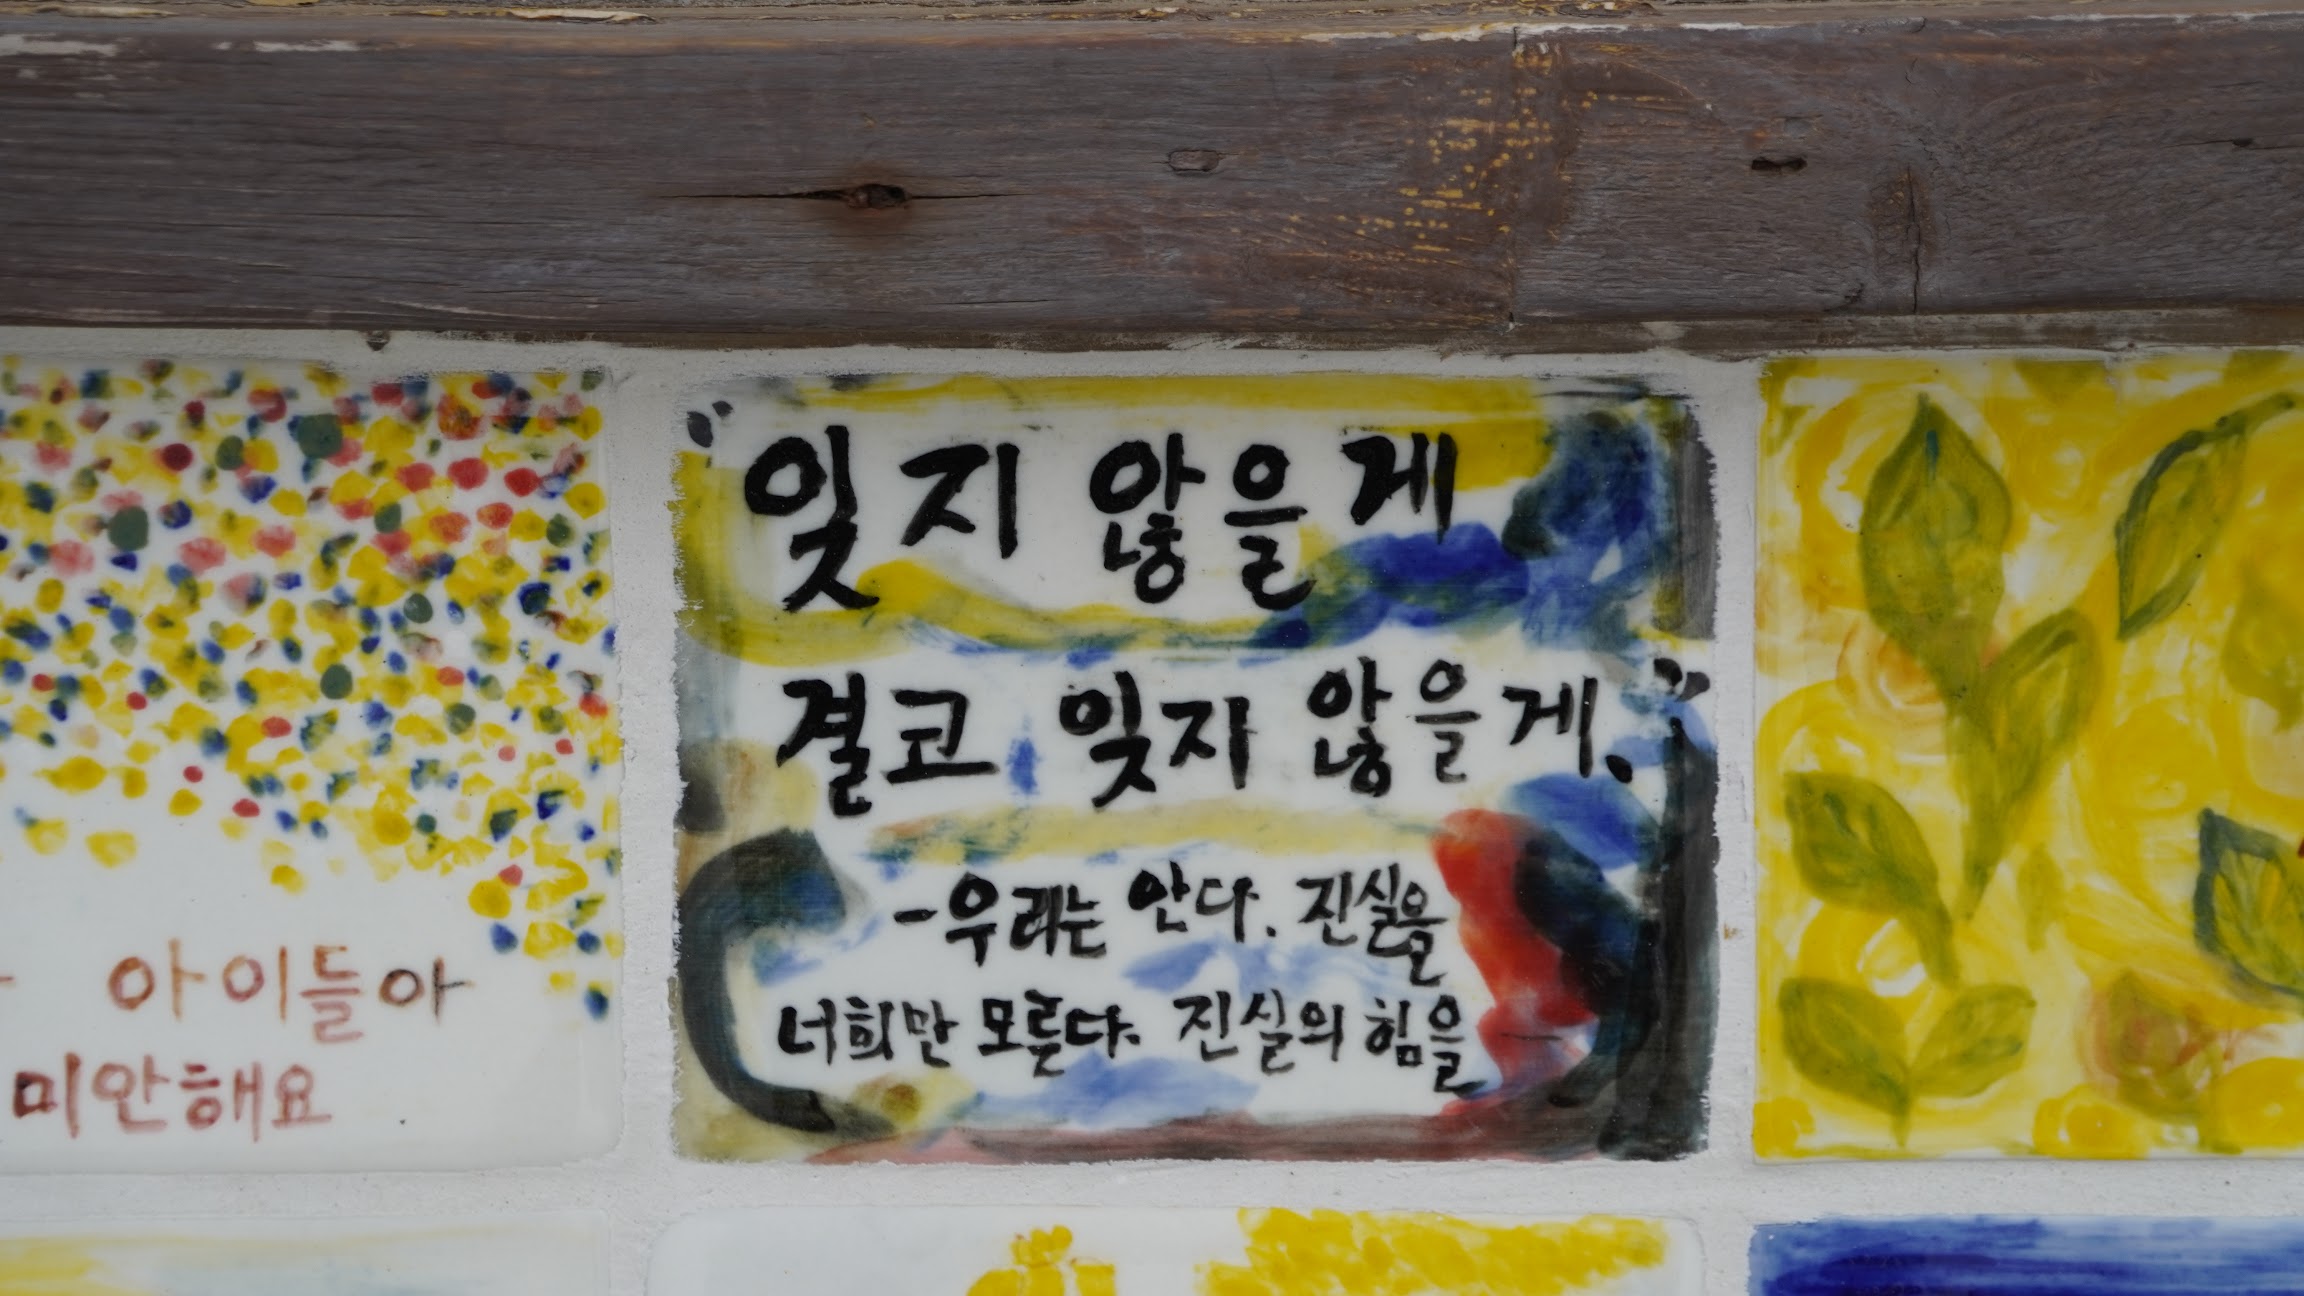 아이들아
미안해요
"잊지 않을게
결코 잊지 않을게."
-우리는 안다. 진실을
너희만 모른다. 진실의 힘을